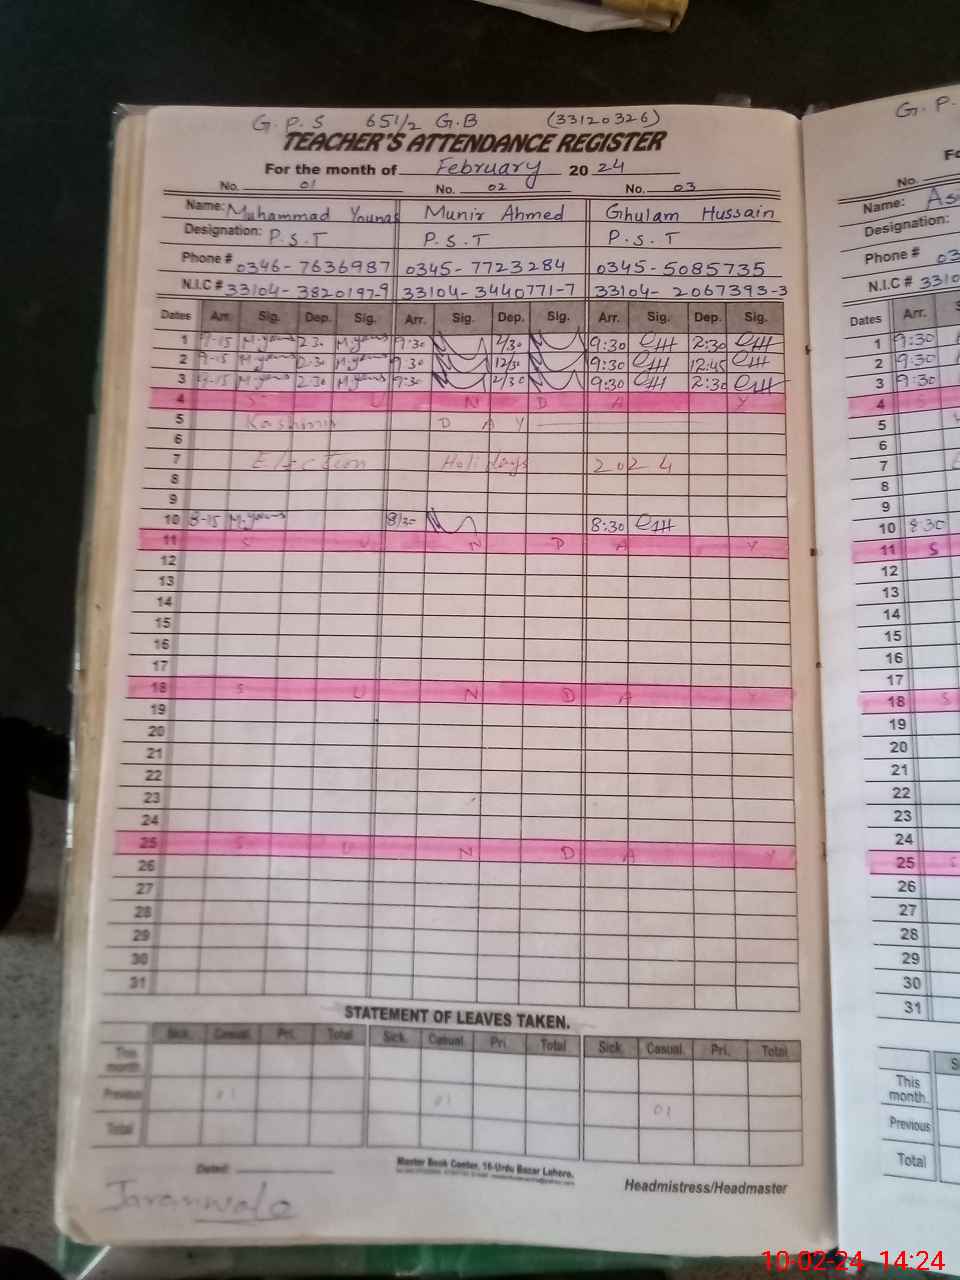 G.P.S 651/2 G.B (33120326)
TEACHER'S ATTENDANCE REGISTER
For the month of February 2024
No. 01 No. 02 No. 03
Name: Muhammad Younas Munir Ahmed Ghulam Hussain
Designation: P.S.T P.S.T P.S.T
Phone # 0346-7636987 0345-7723284 0345-5085735
N.I.C # 33104-3820197-9 33104-3440771-7 33104-2067393-3
Dates Arr. Sig. Dep. Sig. Arr. Sig. Dep. Sig. Arr. Sig. Dep. Sig.
1 M.younas 2:30 M.younas 9:30 2/30 9:30 2:30
2 9-15 M.younas 2:30 M.younas 9:30 12/30 9:30 12:45
3 9-15 M.younas 2:30 M.younas 9:30 2/30 9:30 2:30
4 S U N D A Y
5 Kashmir D A Y
6
7 Election Holidays 2024
8
9
10 8-15 M.younas 8/30 8:30
11 S U N D A Y
12
13
14
15
16
17
18 S U N D A Y
19
20
21
22
23
24
25 S U N D A Y
26
27
28
29
30
31
STATEMENT OF LEAVES TAKEN.
Sick. Casual. Pri. Total Sick. Casual. Pri. Total Sick. Casual. Pri. Total
This month.
Previous 01 01 01
Total
Dated:
Master Book Center, 16-Urdu Bazar Lahore.
Headmistress/Headmaster
Jaranwala
G.P.
No.
Name:
Designation:
Phone # 03
N.I.C # 3310
Dates Arr.
1 9:30
2 9:30
3 9:30
4 S
5
6
7
8
9
10 8:30
11 S
12
13
14
15
16
17
18 S
19
20
21
22
23
24
25
26
27
28
29
30
31
This month.
Previous
Total
10-02-24 14:24